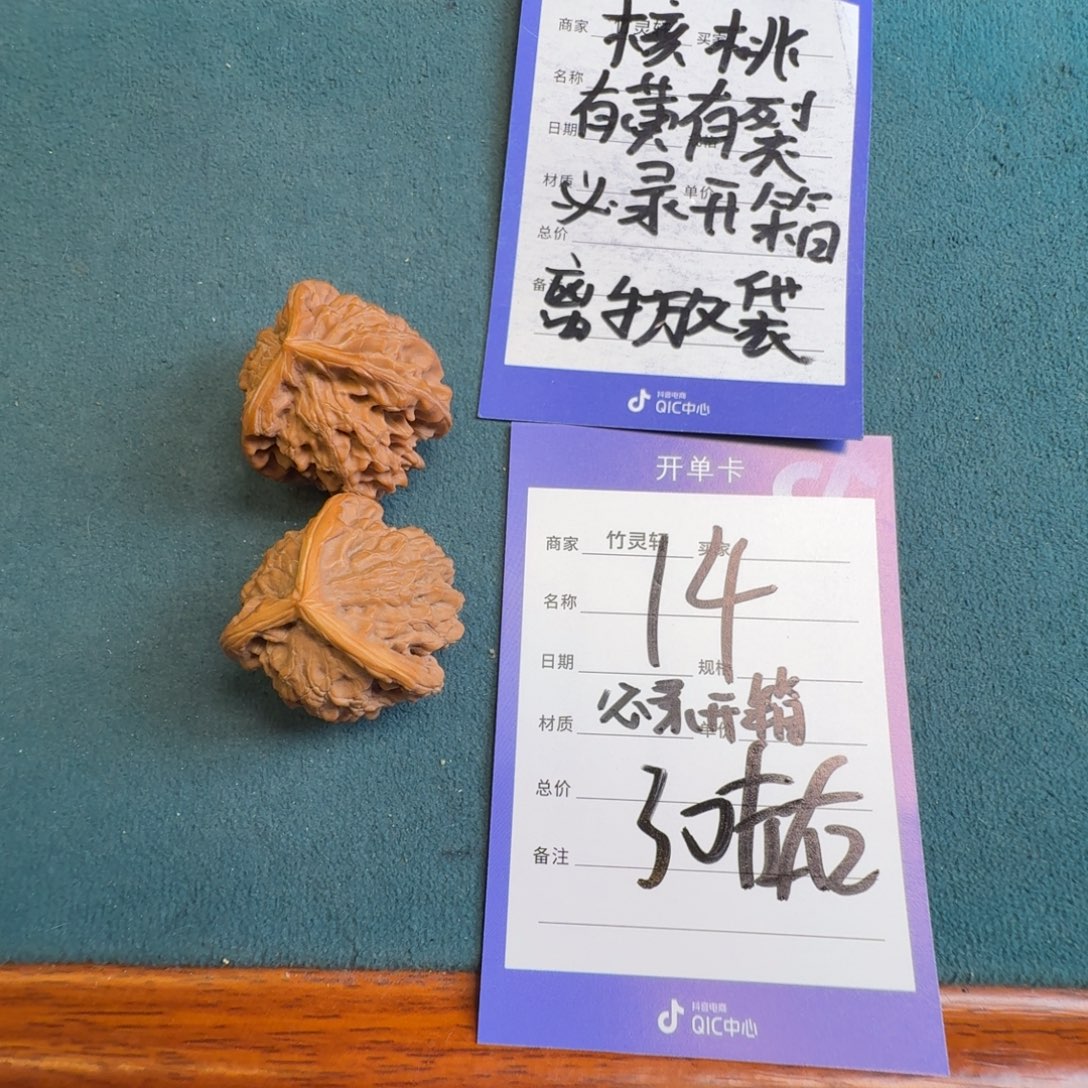 商家 核桃
名称 有黄有裂
日期
材质 必录开箱 单价
总价
备 离手放袋
抖音电商
QIC中心
开单卡
商家 竹灵轩 买家
名称 14
日期 规格
材质 必录开箱 单价
总价 30
备注
抖音电商
QIC中心